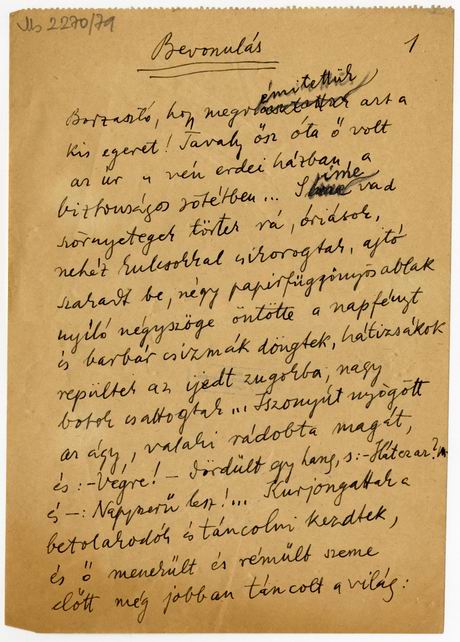 Ms 2270/79
Bevonulás
1
émitettük
Borzasztó, hogy megr azt a
kis egeret! Tavaly ősz óta ő volt
az úr a vén erdei házban, a
biztonságos sötétben... S íme vad
szörnyetegek törtek rá, óriások,
nehéz kulcsokkal csikorogtak, ajtó
szakadt be, négy papírfüggönyös ablak
nyíló négyszöge öntötte a napfényt
és barbár csizmák döngtek, hátizsákok
repültek az ijedt zugokba, nagy
botok csattogtak... Iszonyút nyögött
az ágy, valaki rádobta magát,
és: -Végre! - dördült egy hang, s: -Hátez az?
és -: Nagyszerű lesz!... Kurjongattak a
betolakodók és táncolni kezdtek,
és ő menekült és rémült szeme
előtt még jobban táncolt a világ: